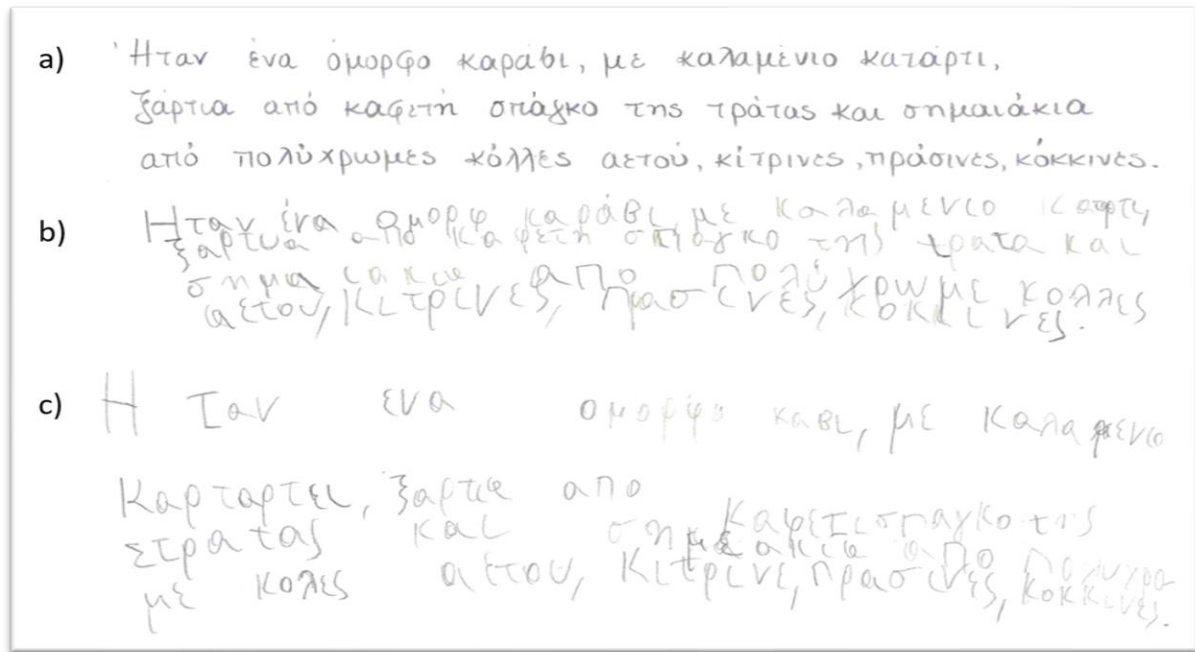 a) Ήταν ένα όμορφο καράβι, με καλαμένιο κατάρτι,
ξάρτια από καφετή σπάγκο της τράτας και σημαιάκια
από πολύχρωμες κόλλες αετού, κίτρινες, πράσινες, κόκκινες.
b) Ηταν ένα ομορφ καράβι, με καλαμενιο
ξαρτυα απο καφετη σπάγκο της τρατα και
σημα ιακια απο πολύ χρωμε κολλες
αετου, κιτρινες, πρασινες, κοκκινες.
c) Η ταν ενα ομορφο καβι, με καλαμενιο
Καρταρτει, ξαρτια απο
καφετισπαγκο της
στρατας και απο
με κολες αετου, κιτρινε, πρασινες, κοκκινες.